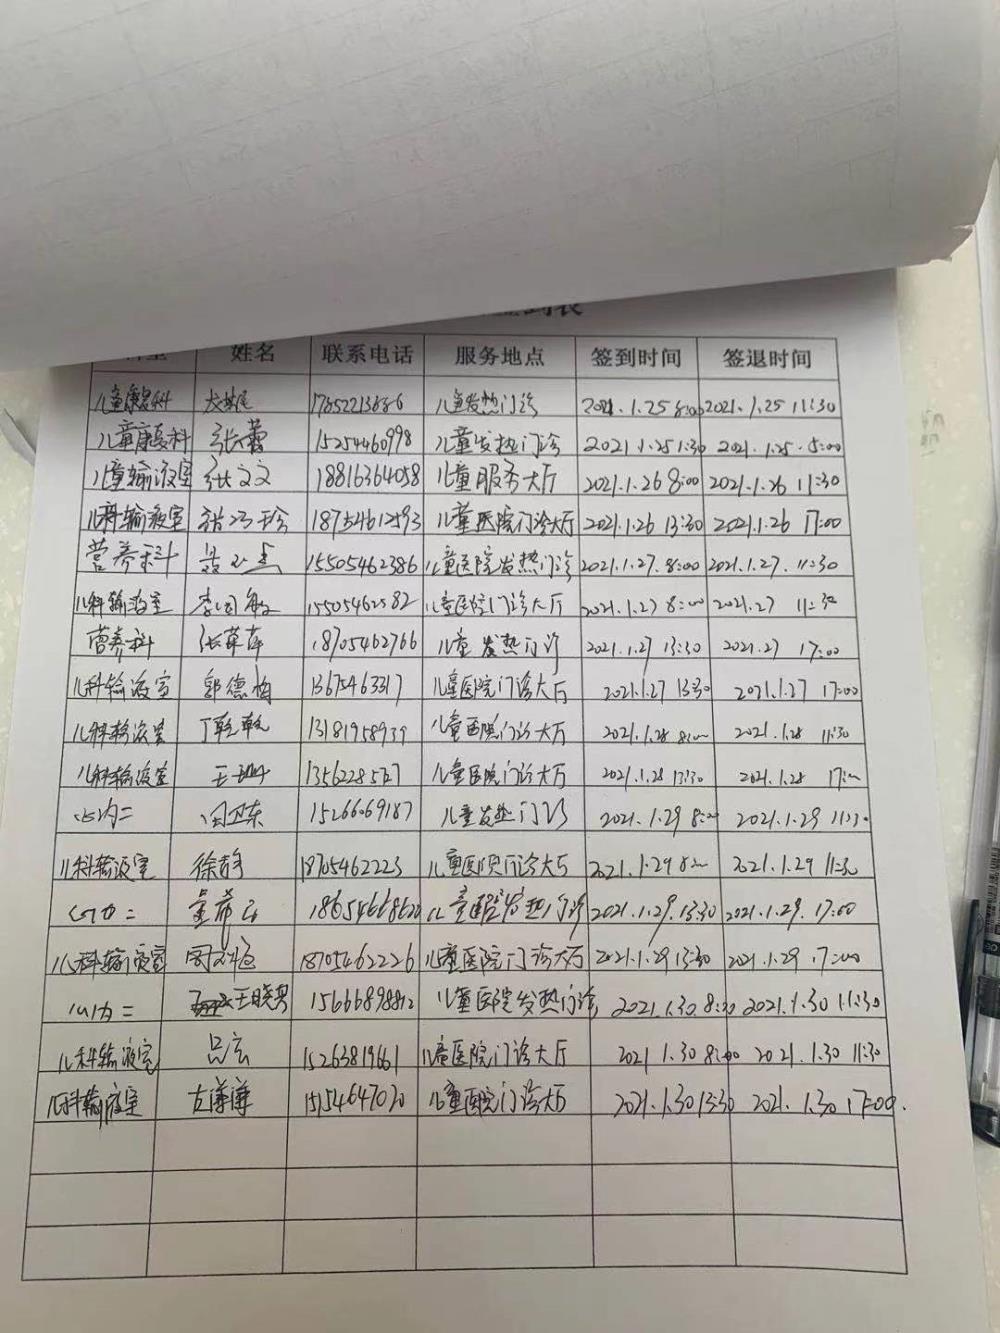 姓名 联系电话 服务地点 签到时间 签退时间
儿童康复科 17852213686 儿童发热门诊 2021.1.25 8:00 2021.1.25 11:30
儿童康复科 张蕾 15254460998 儿童发热门诊 2021.1.25 1:30 2021.1.25. 5:00
儿童输液室 张文文 18816364058 儿童服务大厅 2021.1.26 8:00 2021.1.26 11:30
儿科输液室 张巧珍 18754612593 儿童医院门诊大厅 2021.1.26 13:30 2021.1.26 17:00
营养科 15505462386 儿童医院发热门诊 2021.1.27. 8:00 2021.1.27. 11:30
儿科输液室 15505462582 儿童医院门诊大厅 2021.1.27 8:00 2021.27 11:30
营养科 张莱萍 18705462766 儿童发热门诊 2021.1.27 13:30 2021.27 17:00
儿科输液室 郭德梅 13675463317 儿童医院门诊大厅 2021.1.27 13:30 2021.1.27 17:00
儿科输液室 丁乾乾 13181958939 儿童医院门诊大厅 2021.1.28 8:00 2021.1.28 11:30
儿科输液室 王 儿童医院门诊大厅 2021.1.28 13:30 2021.1.28 17:00
心内二 闫卫东 15266069187 儿童发热门诊 2021.1.29 8:00 2021.1.29 11:30
儿科输液室 徐静 18705462223 儿童医院门诊大厅 2021.1.29 8:00 2021.1.29 11:30
心内二 儿童医院发热门诊 2021.1.29. 13:30 2021.1.29. 17:00
儿科输液室 18705462226 儿童医院门诊大厅 2021.1.29 13:30 2021.1.29 17:00
心内二 王晓男 15666898812 儿童医院发热门诊 2021.1.30 8:30 2021.1.30 11:30
儿科输液室 吕玄 15263819661 儿童医院门诊大厅 2021 1.30 8:00 2021.1.30 11:30
儿科输液室 左萍萍 15154647030 儿童医院门诊大厅 2021.1.30 13:30 2021.1.30 17:00.